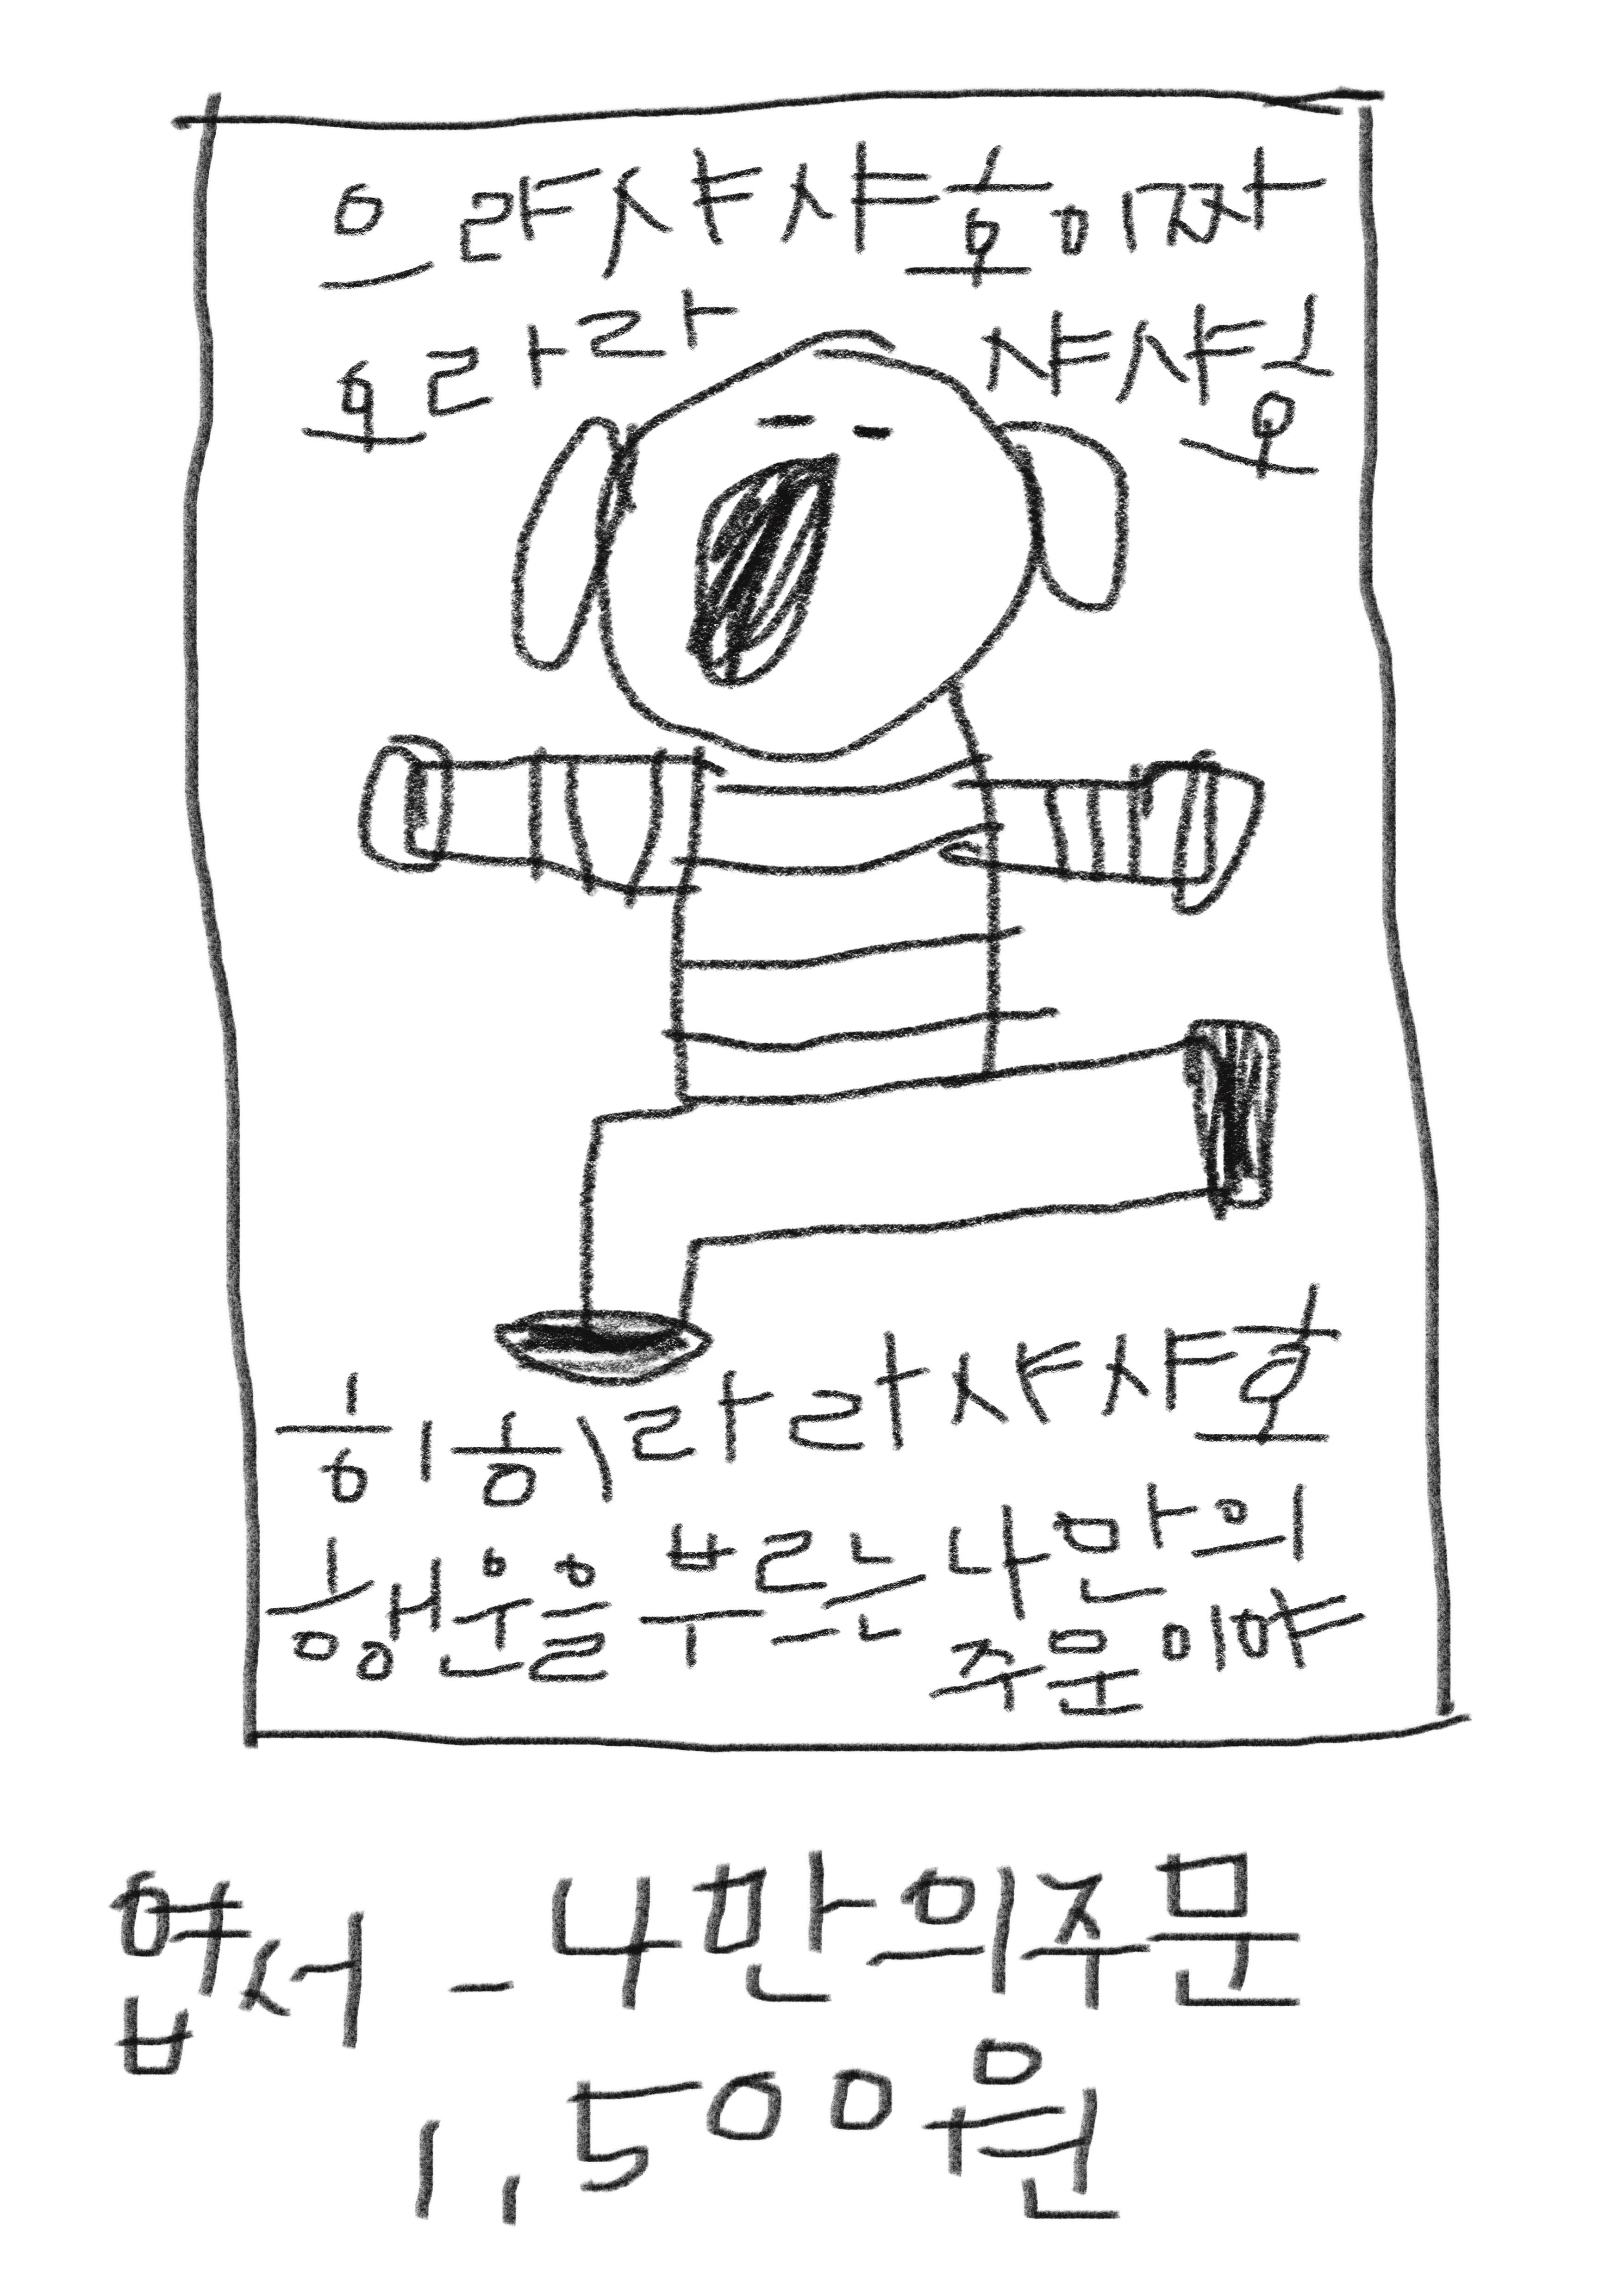 으랴샤샤호이쨔
호라라 샤샤호
히히라라샤샤호
행운을 부르는 나만의
주문이야
엽서 - 나만의 주문
1,500원